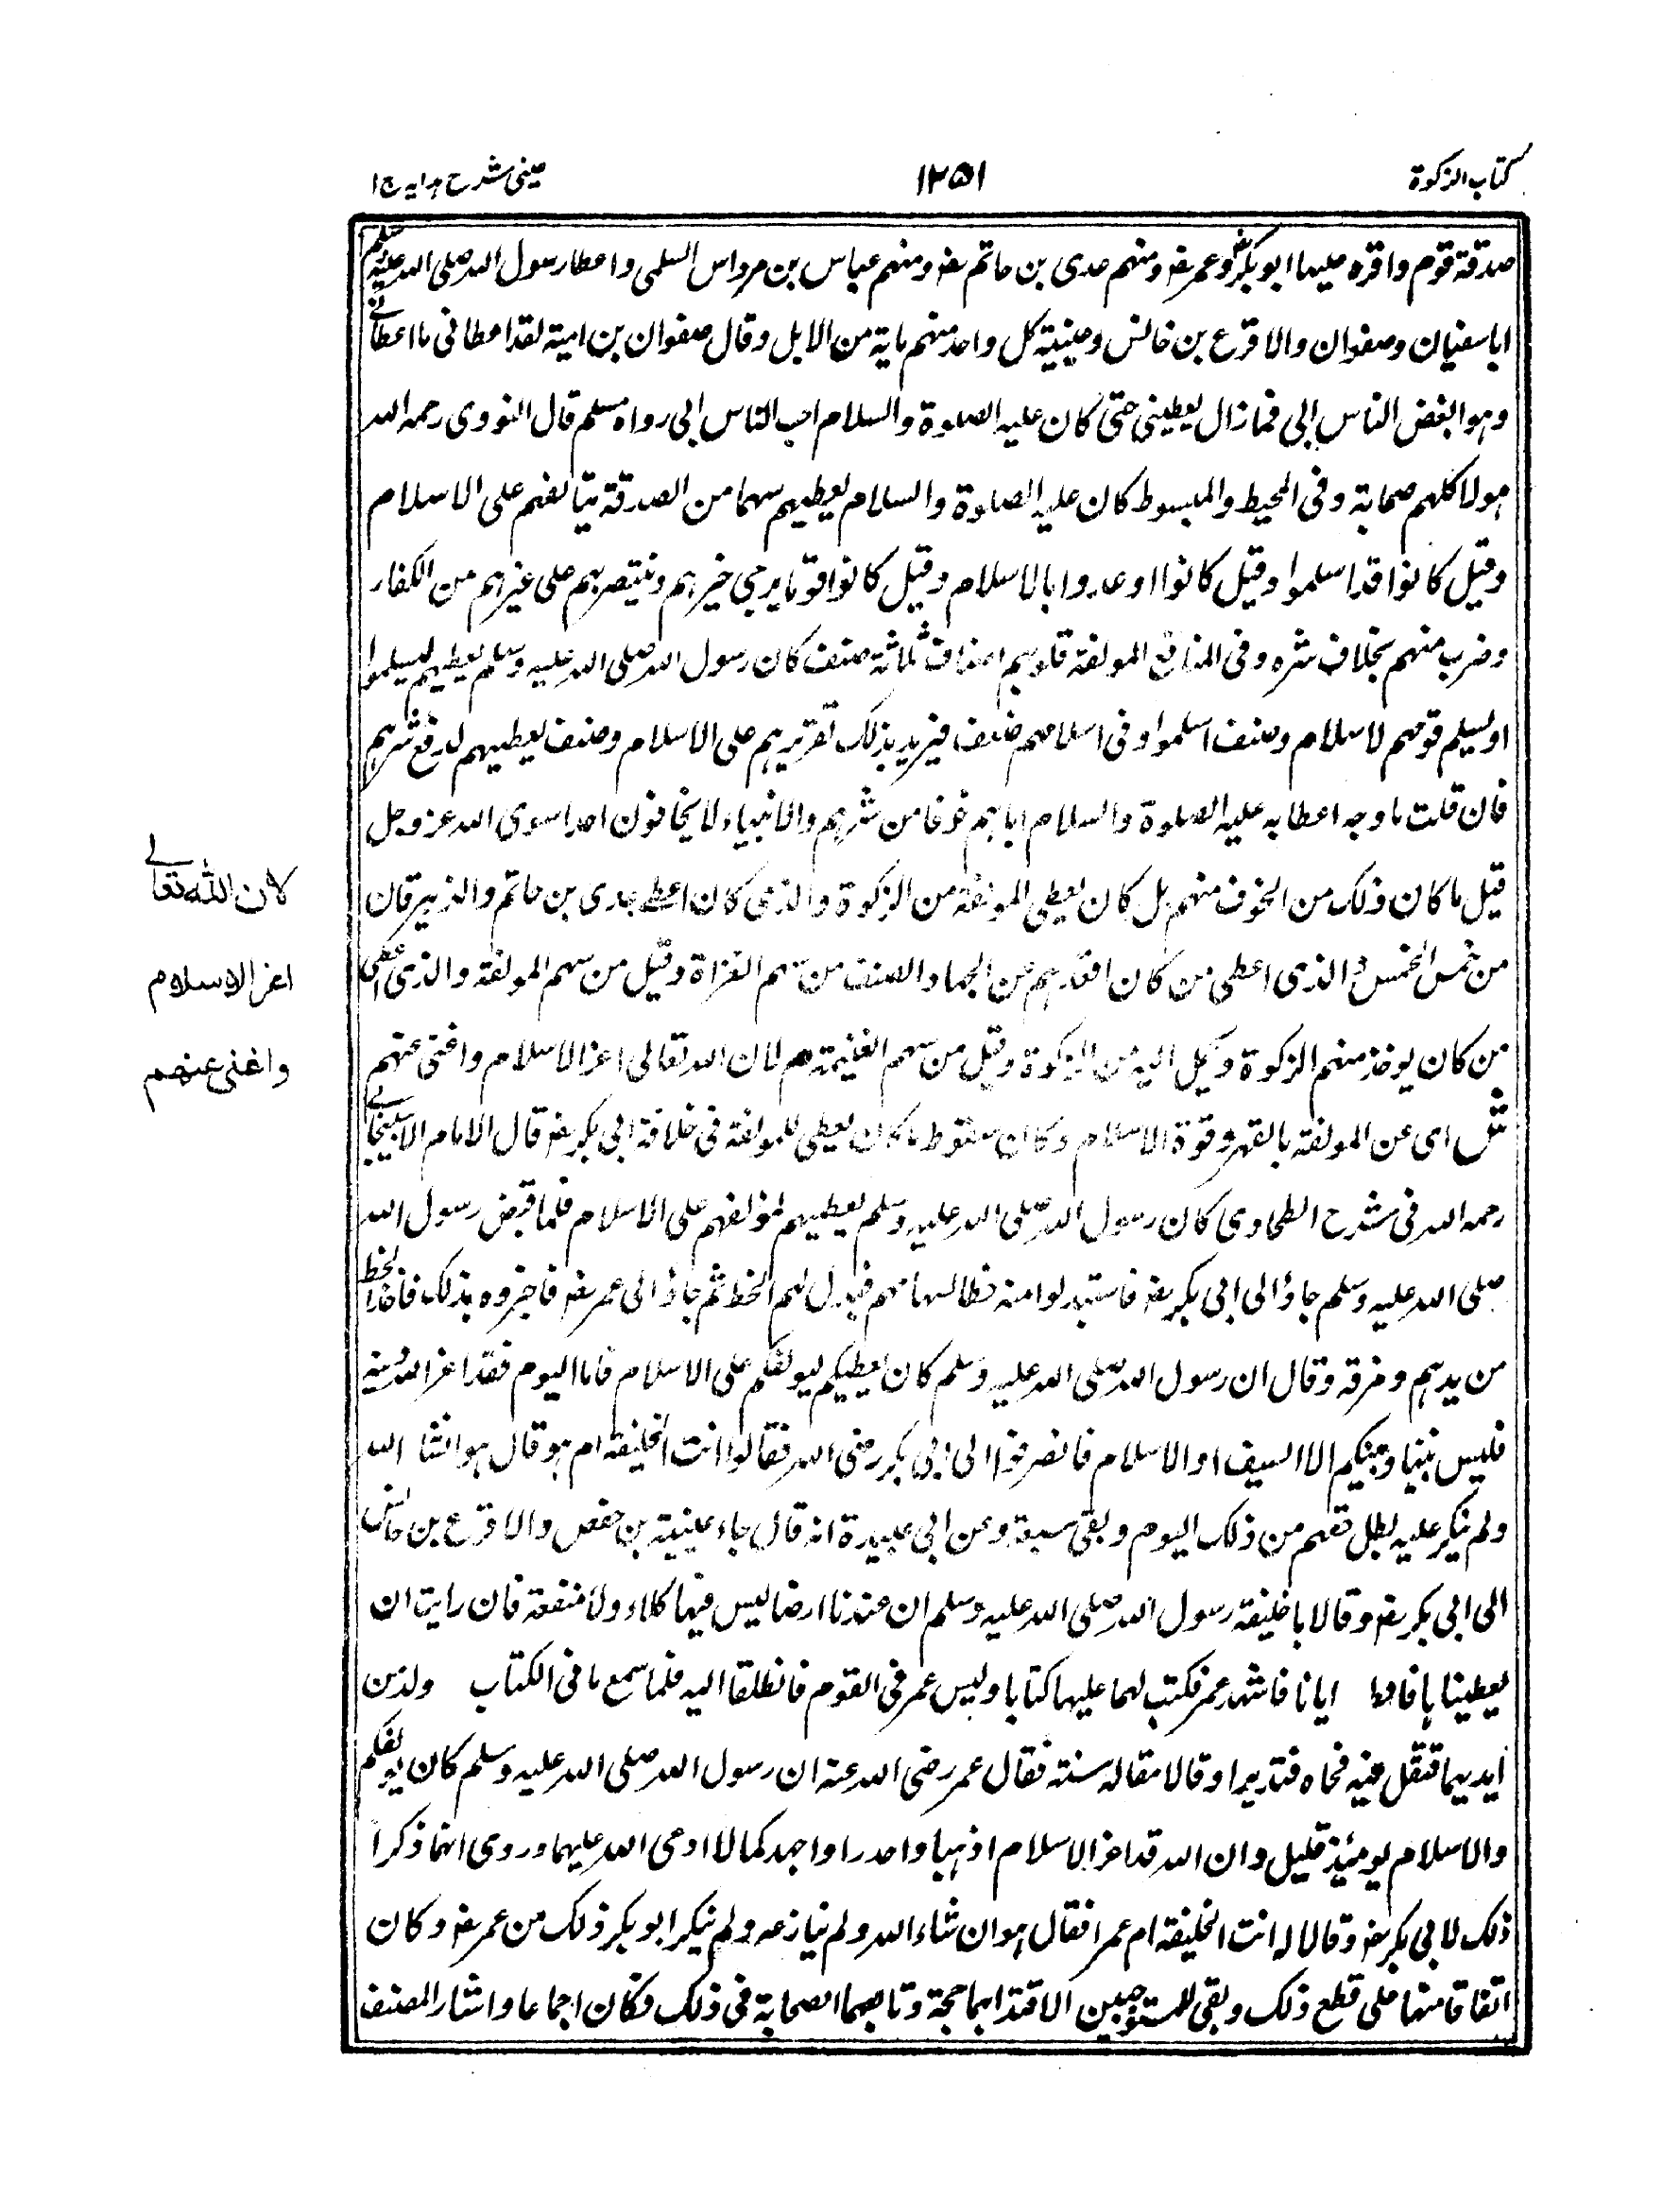 كتاب الزكوة
١٢٥١
عينى شرح هدايه ج ١
صدقة قوم واقره عليها ابو بكر رض وعمر رض ومنهم عدى بن حاتم رض ومنهم عباس بن مرداس السلمى واعطا رسول الله صلى الله عليه وسلم
ابا سفيان وصفوان والاقرع بن حابس وعيينة كل واحد منهم ماية من الابل وقال صفوان بن امية لقد اعطانى ما اعطانى
وهو ابغض الناس الى فما زال يعطينى حتى كان عليه الصلوة والسلام احب الناس الى رواه مسلم قال النووى رحمه الله
هولا كلهم صحابة وفى المحيط والمبسوط كان عليه الصلوة والسلام يعطيهم سهما من الصدقة يتألفهم على الاسلام
وقيل كانوا قد اسلموا وقيل كانوا اوعدوا بالاسلام وقيل كانوا قوما يرجى خيرهم ويتنصر بهم على غيرهم من الكفار
وضرب منهم يخلاف شره وفى المنافع المولفة قلوبهم اصناف ثلاثة صنف كان رسول الله صلى الله عليه وسلم يعطيهم ليسلموا
اويسلم قومهم لاسلام وصنف اسلموا وفى اسلامهم ضعف فيزيد بذلك تقريرهم على الاسلام وصنف يعطيهم لدفع شرهم
فان قلت ما وجه اعطايه عليه الصلوة والسلام اياهم خوفا من شرهم والانبياء لا يخافون احدا سوى الله عز وجل
قيل ما كان ذلك من الخوف منهم بل كان يعطى المولفة من الزكوة والذى كان اعطى عدى بن حاتم والزبرقان
من خمس الخمس والذى اعطى من كان افقرهم عن الجهاد الصنف من سهم الغزاة وقيل من سهم المولفة والذى اعطى
من كان يوخذ منهم الزكوة ويحمل اليه من الزكوة وقيل من سهم الغنيمة هم لان الله تعالى اعز الاسلام واغنى عنهم
ش اى عن المولفة بالقهر وقوة الاسلام وكان سقوط ما كان يعطى للمولفة فى خلافة ابى بكر رض قال الامام الاسبيجابى
رحمه الله فى شرح الطحاوى كان رسول الله صلى الله عليه وسلم يعطيهم لمؤلفهم على الاسلام فلما قبض رسول الله
صلى الله عليه وسلم جاؤ الى ابى بكر رض فاستبدلوا منه خطا لسهامهم فبدل لهم الخط ثم جاؤ الى عمر رض فاخبروه بذلك فاخذ الخط
من يدهم ومزقه وقال ان رسول الله صلى الله عليه وسلم كان يعطيكم ليولفكم على الاسلام فاما اليوم فقد اعز الله دينه
فليس بيننا وبينكم الا السيف او الاسلام فانصرفوا الى ابى بكر رضى الله فقالوا انت الخليفة ام هو قال هو انشا الله
ولم ينكر عليه بطل حقهم من ذلك اليوم وبقى سبعة وعن ابى عبيدة انه قال جاء عيينة بن حفص والاقرع بن حابس
الى ابى بكر رض وقالا يا خليفة رسول الله صلى الله عليه وسلم ان عندنا ارضا ليس فيها كلاء ولا منفعة فان رايت ان
يعطينا اياها ايانا فاشهد عمر فكتب لهما عليها كتابا وليس عمر فى القوم فانطلقا اليه فلما سمع ما فى الكتاب ولذن
ايديهما فتفل فيه فمحاه فتذمرا وقالا مقاله سنته فقال عمر رضى الله عنه ان رسول الله صلى الله عليه وسلم كان يولفكم
والاسلام يومئذ قليل وان الله قد اعز الاسلام اذهبا واحدرا واجهد كما لا ادعى الله عليهما وروى انهما ذكرا
ذلك لابى بكر رض وقالا له انت الخليفة ام عمرا فقال هو ان شاء الله ولم ينازعه ولم ينكر ابو بكر ذلك من عمر رض وكان
اتفاقا منهما على قطع ذلك وبقى للمستوجبين الاقتدا بهما حجة وتابعهما الصحابة فى ذلك فكان اجماعا واشار المصنف
لان الله تعالى
اعز الاسلام
واغنى عنهم